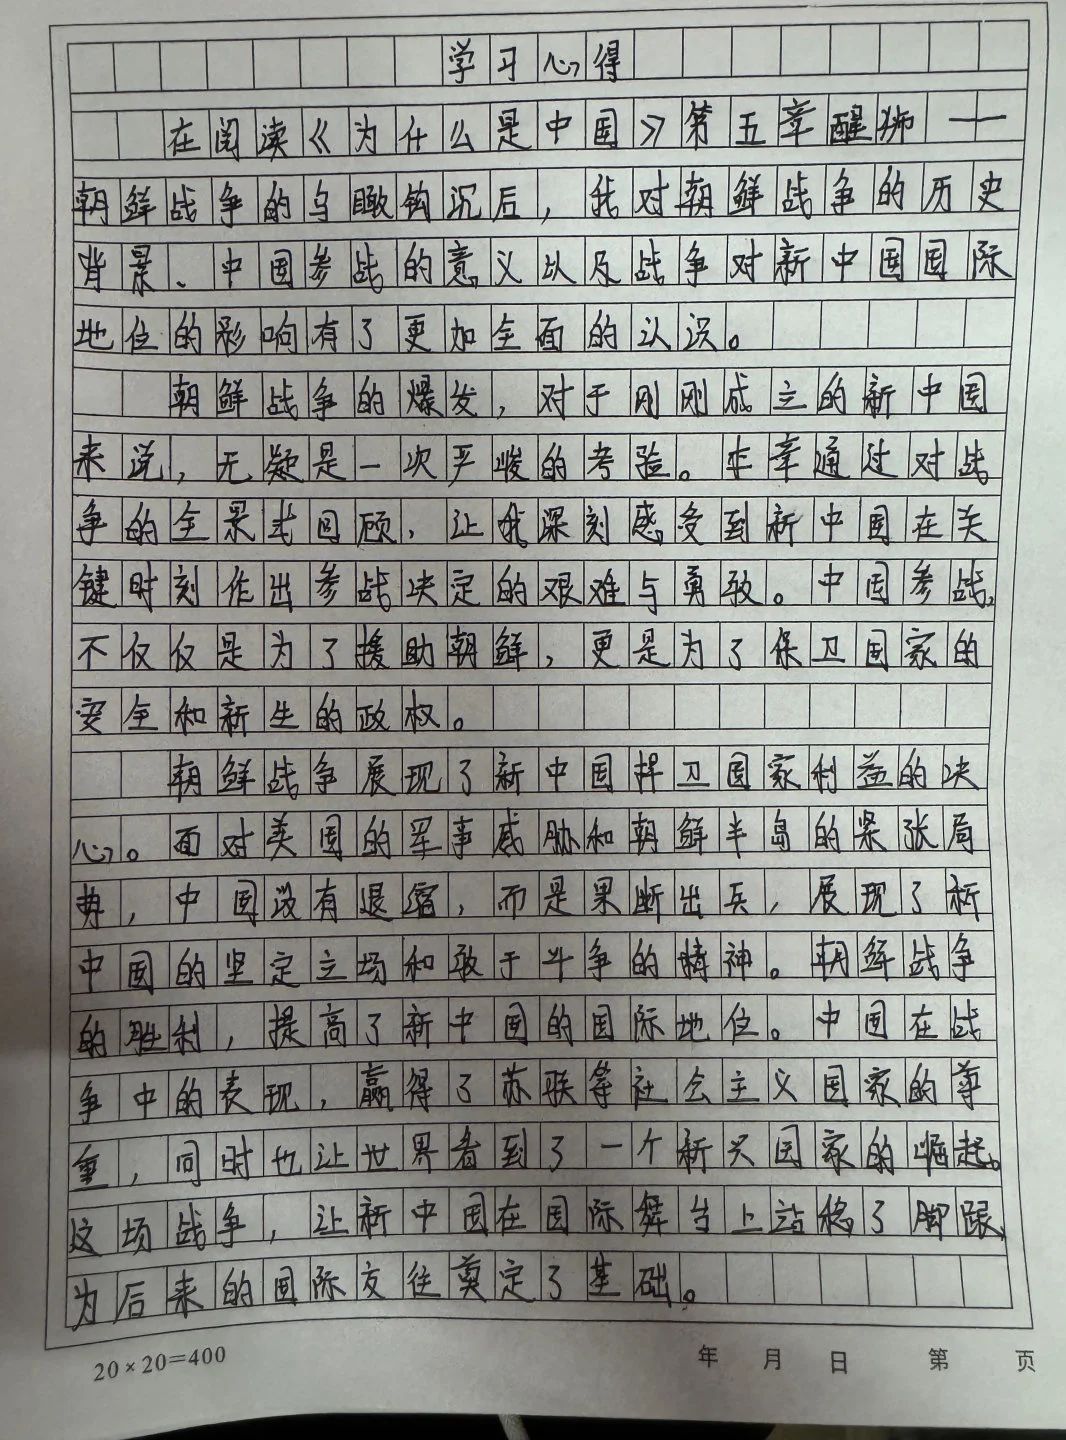 学习心得
在阅读《为什么是中国》第五章醒狮——
朝鲜战争的鸟瞰钩沉后，我对朝鲜战争的历史
背景、中国参战的意义以及战争对新中国国际
地位的影响有了更加全面的认识。
朝鲜战争的爆发，对于刚刚成立的新中国
来说，无疑是一次严峻的考验。本章通过对战
争的全景式回顾，让我深刻感受到新中国在关
键时刻作出参战决定的艰难与勇敢。中国参战，
不仅仅是为了援助朝鲜，更是为了保卫国家的
安全和新生的政权。
朝鲜战争展现了新中国捍卫国家利益的决
心。面对美国的军事威胁和朝鲜半岛的紧张局
势，中国没有退缩，而是果断出兵，展现了新
中国的坚定立场和敢于斗争的精神。朝鲜战争
的胜利，提高了新中国的国际地位。中国在战
争中的表现，赢得了苏联等社会主义国家的尊
重，同时也让世界看到了一个新兴国家的崛起。
这场战争，让新中国在国际舞台上站稳了脚跟，
为后来的国际交往奠定了基础。
20×20=400
年 月 日 第 页